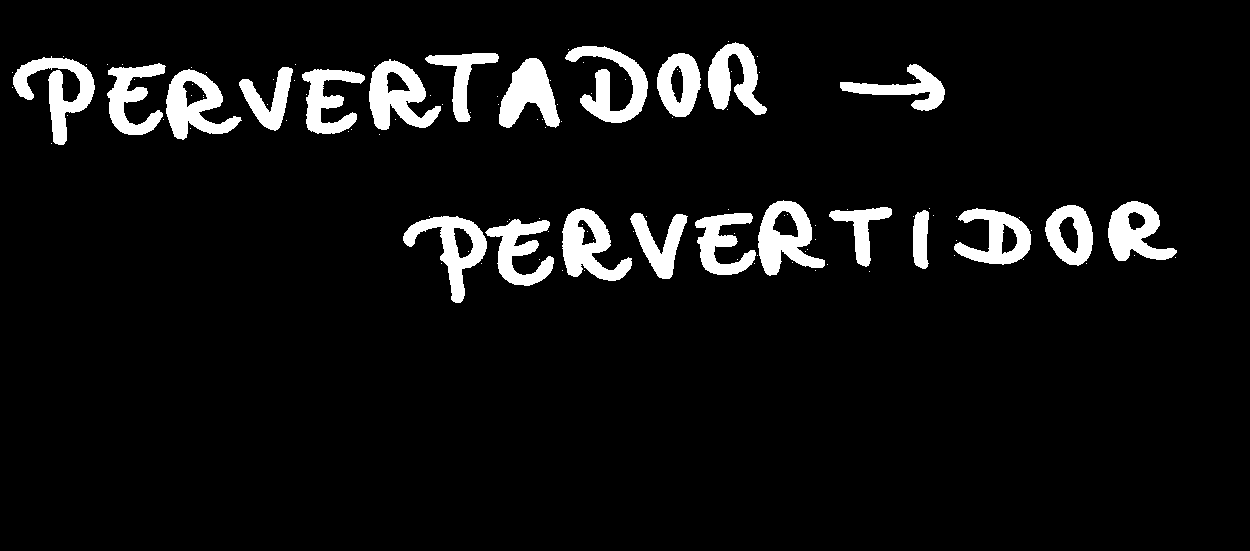 PERVERTADOR →
PERVERTIDOR